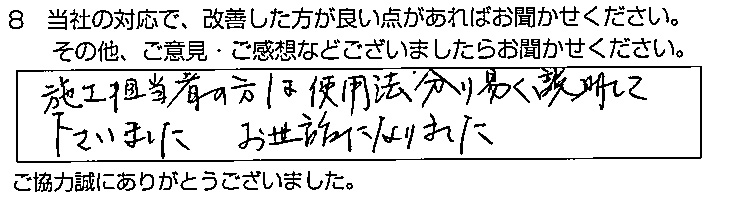 8 当社の対応で、改善した方が良い点があればお聞かせください。
その他、ご意見・ご感想などございましたらお聞かせください。
施工担当者の方は使用法分り易く説明して
下さいました お世話になりました
ご協力誠にありがとうございました。